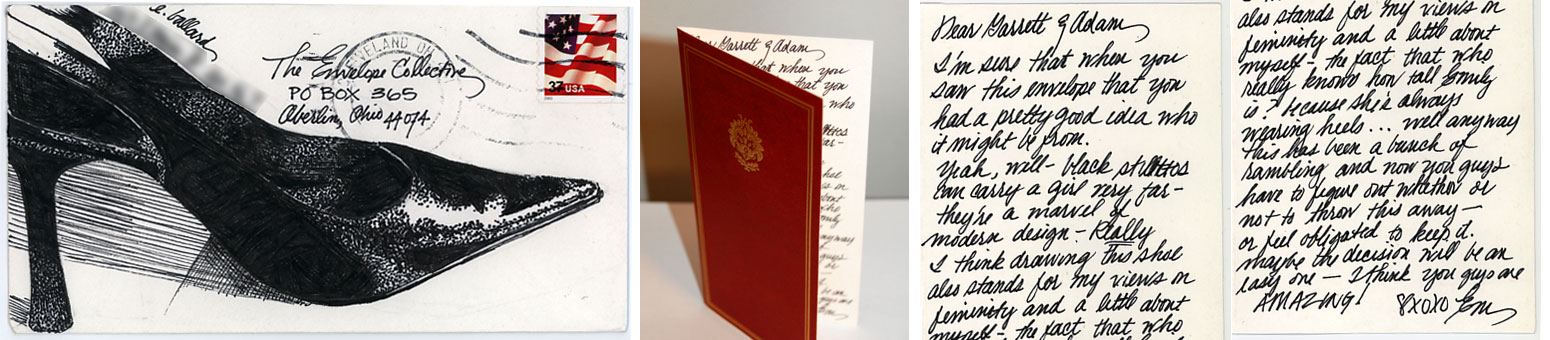 e. ballard
The Envelope Collective
PO BOX 365
Oberlin, Ohio 44074
CLEVELAND OH
37 USA
Dear Garrett & Adam
that when you
that you
who
Dear Garrett & Adam,
I'm sure that when you
saw this envelope that you
had a pretty good idea who
it might be from.
Yeah, well - black stilettos
can carry a girl very far -
they're a marvel of
modern design - Really
I think drawing this shoe
also stands for my views on
feminity and a little about
myself - the fact that who
also stands for my views on
feminity and a little about
myself - the fact that who
really knows how tall Emily
is? because she's always
wearing heels... well anyway
this has been a bunch of
rambling and now you guys
have to figure out whether or
not to throw this away -
or feel obligated to keep it.
maybe the decision will be an
easy one - I think you guys are
AMAZING! 8XOXO Em